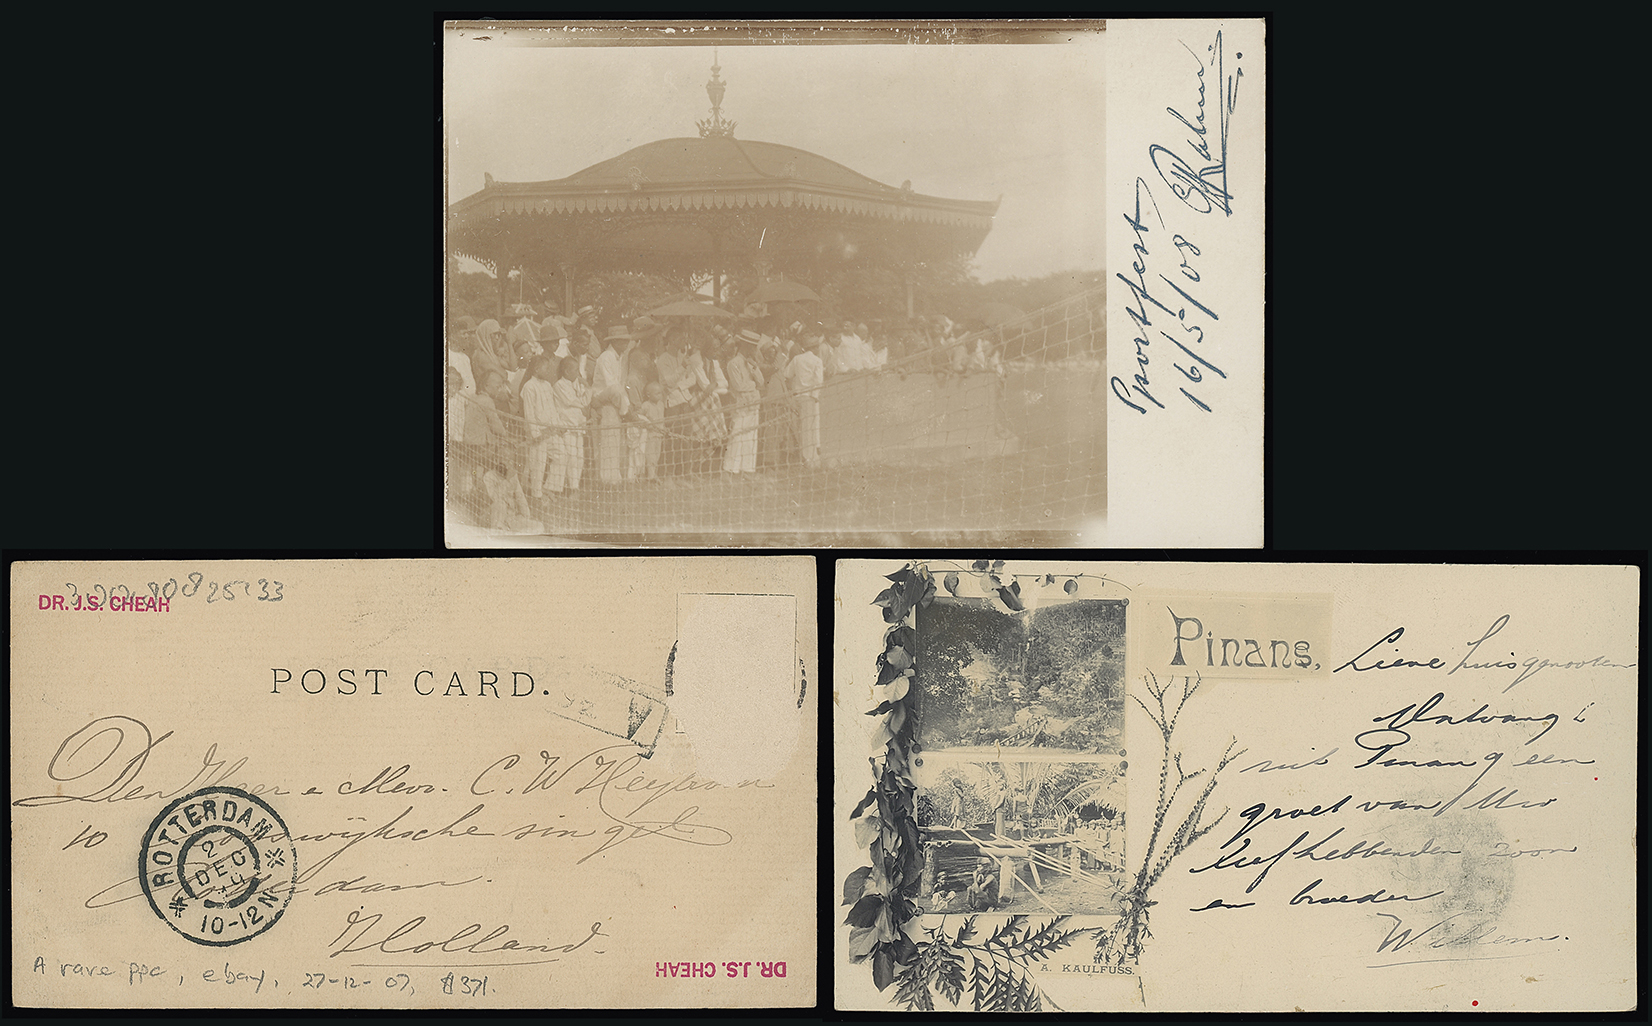 Sportfest
16/5/08
DR. J.S. CHEAH
POST CARD.
Den Heer & Mevr. C. W.
10 singel
Holland.
ROTTERDAM
2
DEC
10-12 N
DR. J.S. CHEAH
A rare ppc, ebay, 27-12-07, $371.
Pinang,
Lieve huisgenooten
Ontvang
uit Pinang een
groet van Uw
liefhebbenden zoon
en broeder
Willem.
A. KAULFUSS.